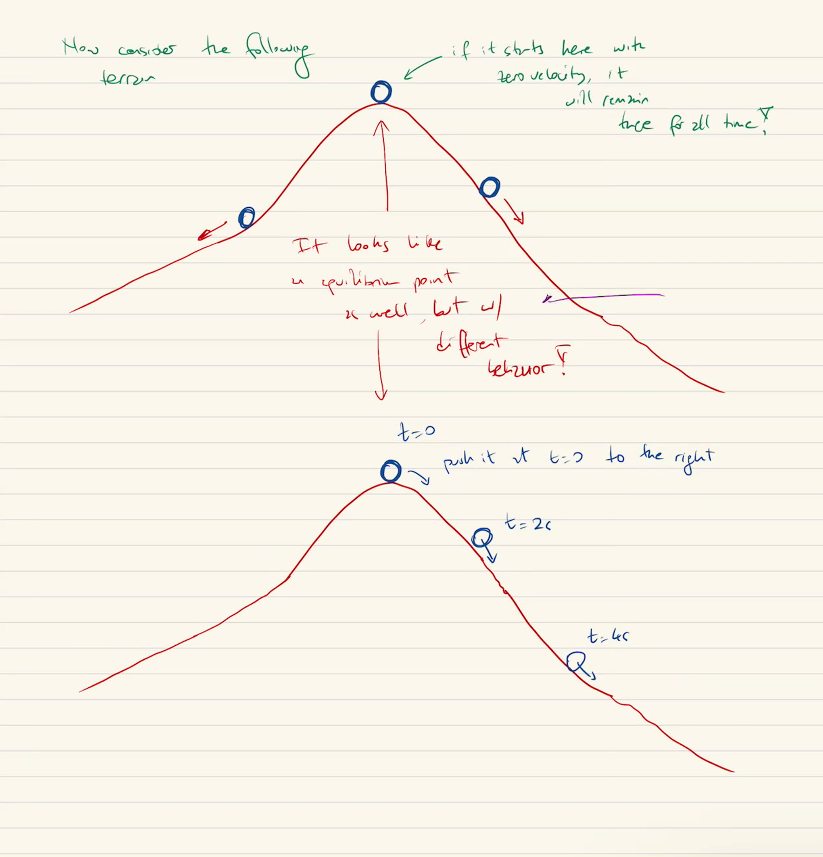 Now consider the following
terrain
if it starts here with
zero velocity, it
will remain
there for all time!
It looks like
an equilibrium point
as well, but w/
different
behavior!
t=0
push it at t=0 to the right
t=2s
t=4s